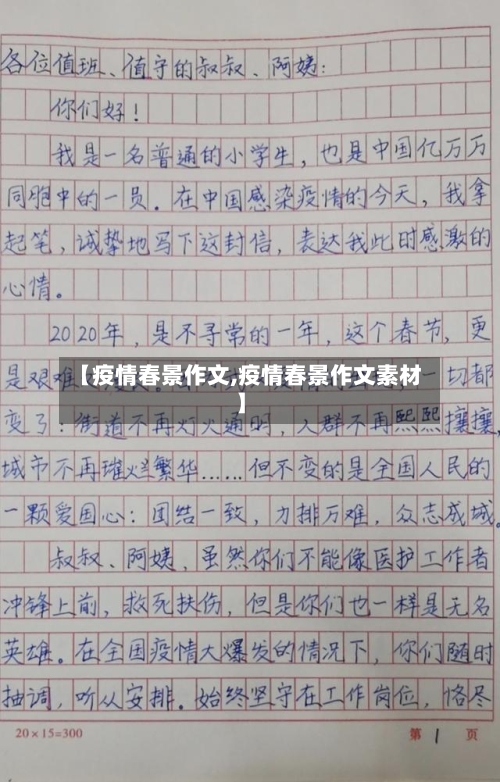 各位值班、值守的叔叔、阿姨:
你们好!
我是一名普通的小学生,也是中国亿万万
同胞中的一员。在中国感染疫情的今天,我拿
起笔,诚挚地写下这封信,表达我此时感激的
心情。
2020年,是不寻常的一年,这个春节,更
是艰难
一切都
【疫情春景作文,疫情春景作文素材
】
变了:街道不再灯火通明,人群不再熙熙攘攘,
城市不再璀烂繁华……但不变的是全国人民的
一颗爱国心:团结一致,力排万难,众志成城。
叔叔、阿姨,虽然你们不能像医护工作者
冲锋上前,救死扶伤,但是你们也一样是无名
英雄。在全国疫情大爆发的情况下,你们随时
抽调,听从安排。始终坚守在工作岗位,恪尽
20×15=300 第 1 页